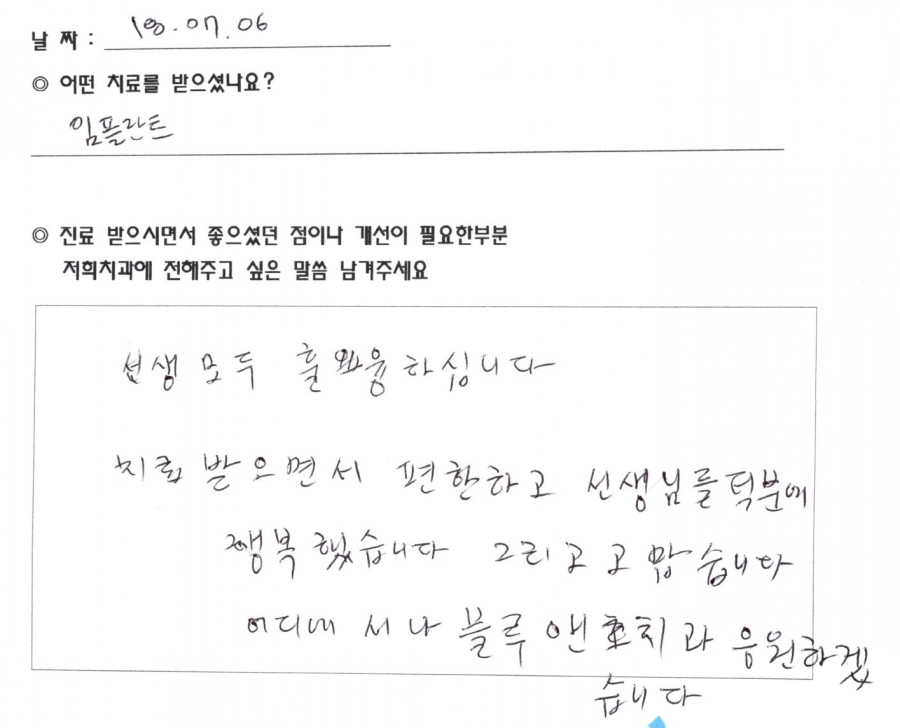 날 짜 : 18.07.06
◎ 어떤 치료를 받으셨나요?
임플란트
◎ 진료 받으시면서 좋으셨던 점이나 개선이 필요한부분
저희치과에 전해주고 싶은 말씀 남겨주세요
선생 모두 훌융하십니다
치료 받으면서 편한하고 선생님를 덕분에
행복했습니다 그리고 고맙습니다
어디에서나 블루앤치과 응원하겠
습니다